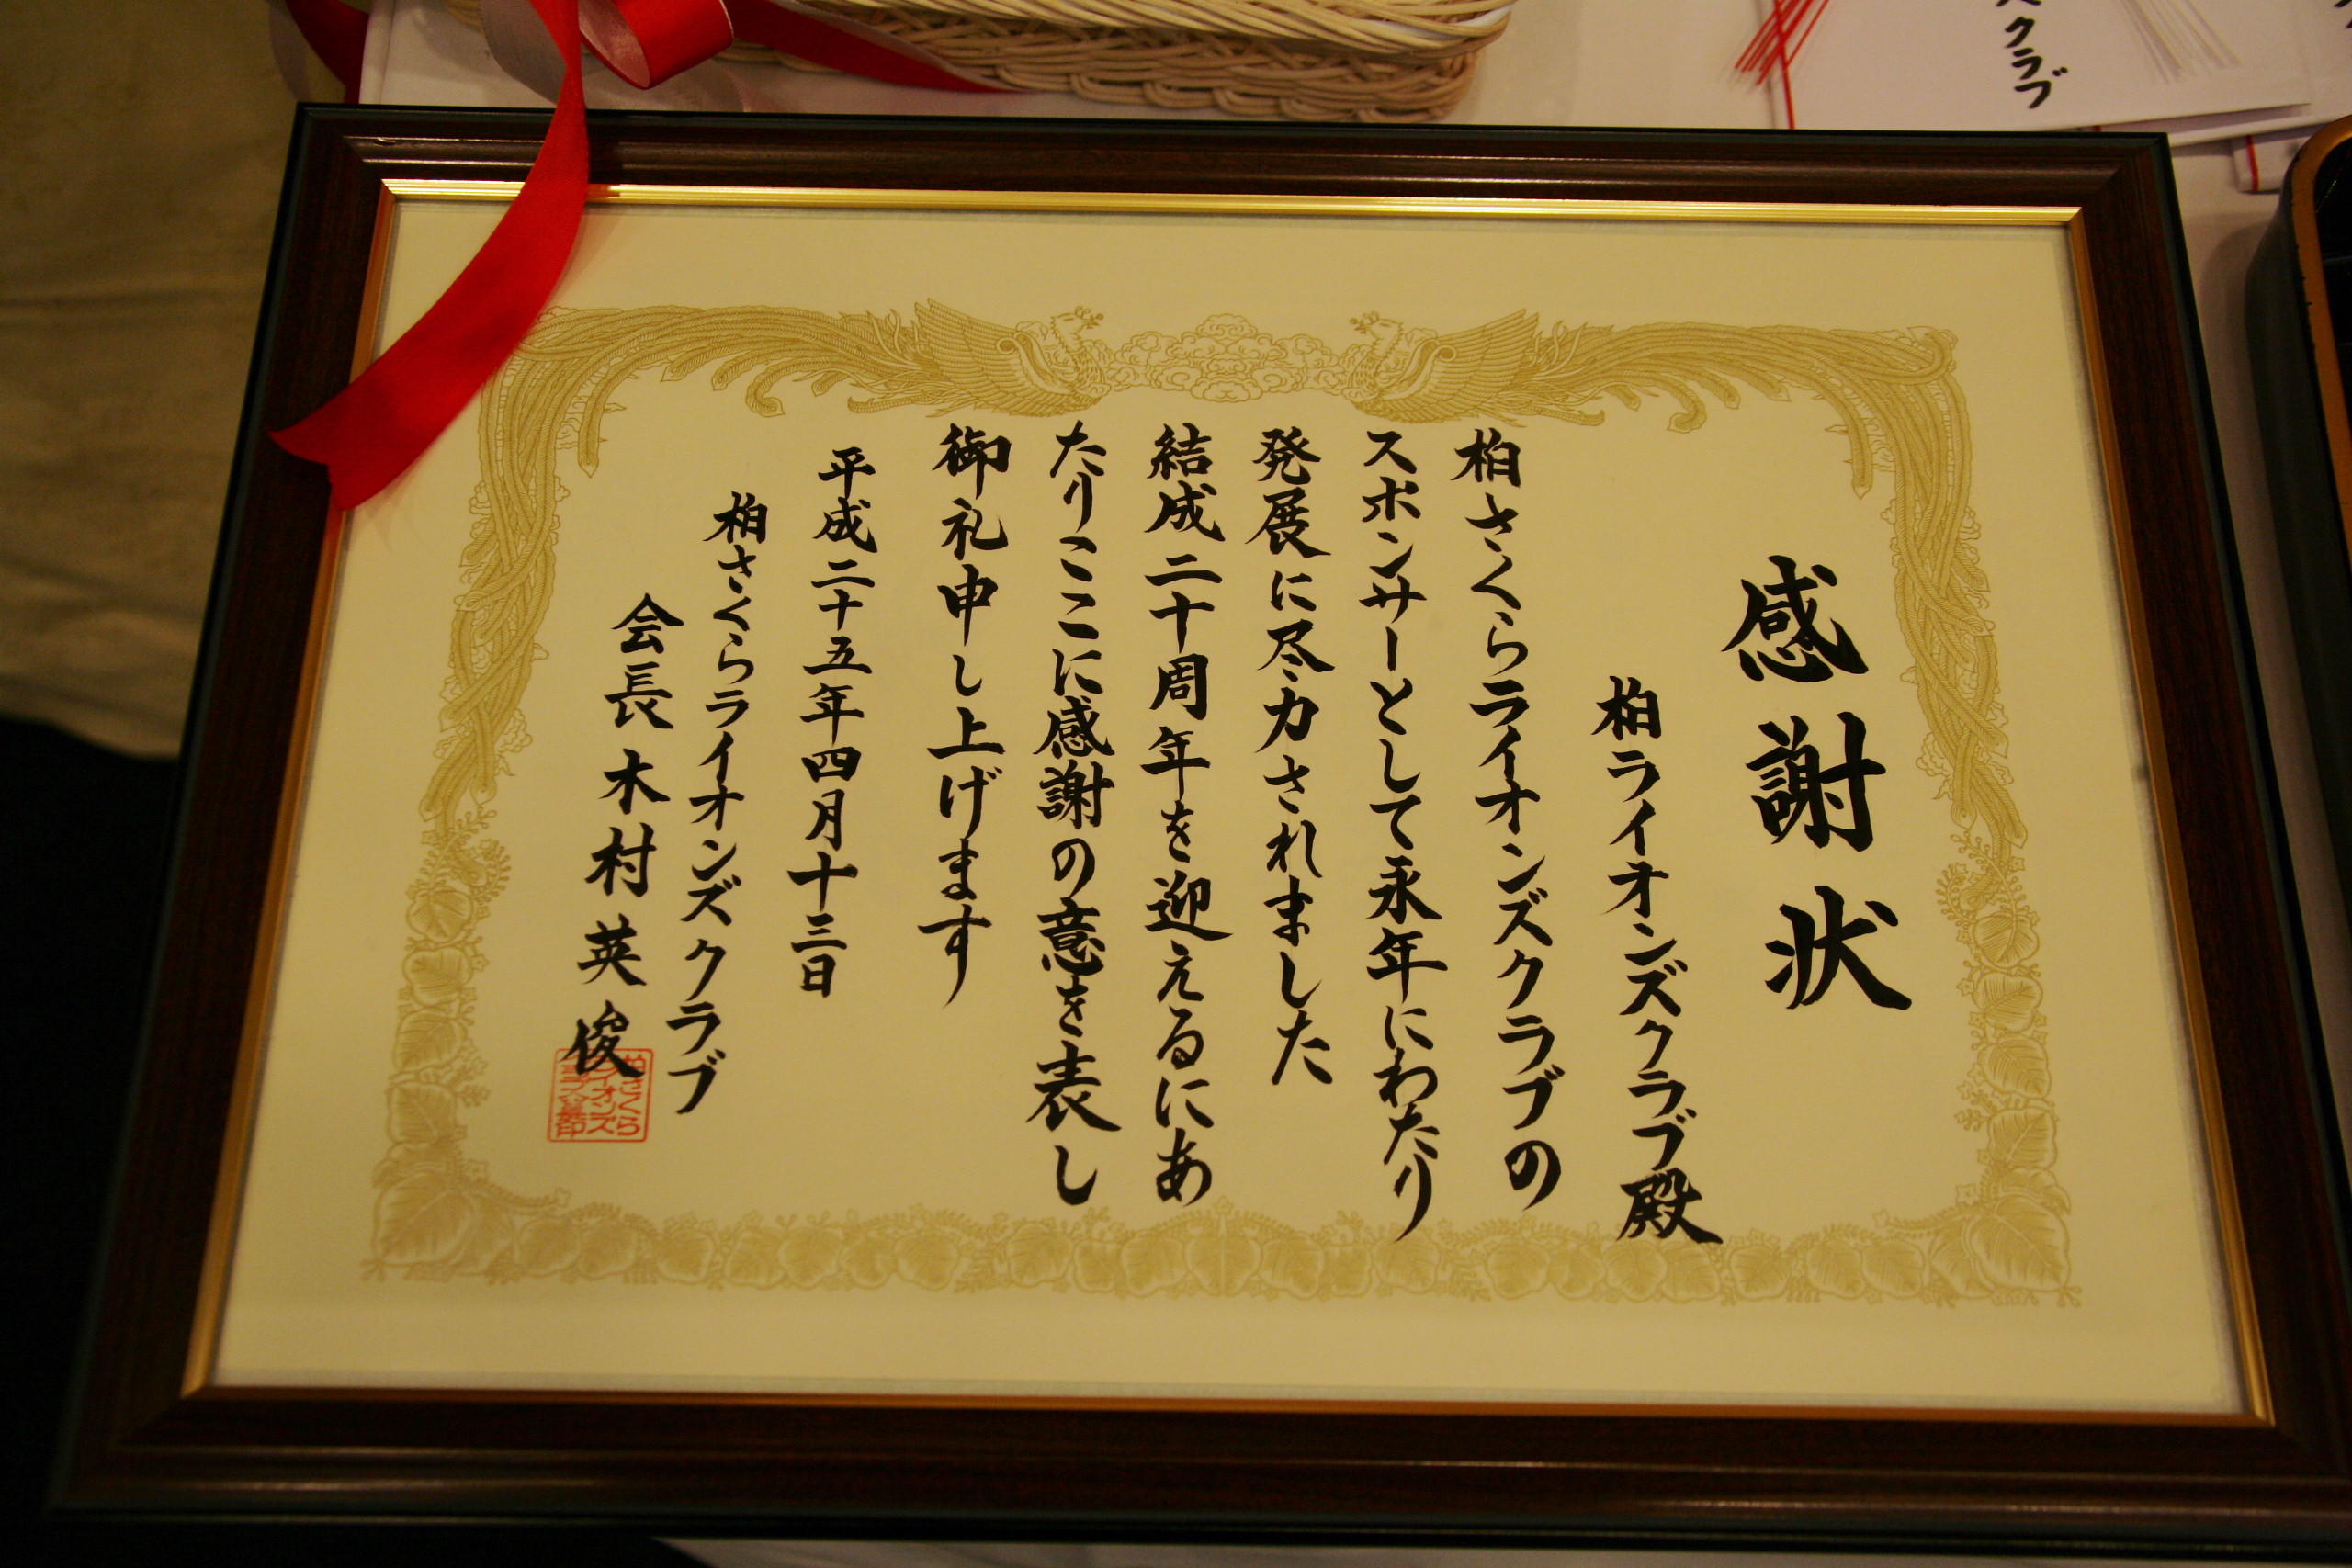 感謝状
柏ライオンズクラブ殿
柏さくらライオンズクラブの
スポンサーとして永年にわたり
発展に尽力されました
結成二十周年を迎えるにあ
たりここに感謝の意を表し
御礼申し上げます
平成二十五年四月十三日
柏さくらライオンズクラブ
会長木村英俊
柏さくら
ライオンズ
クラブ